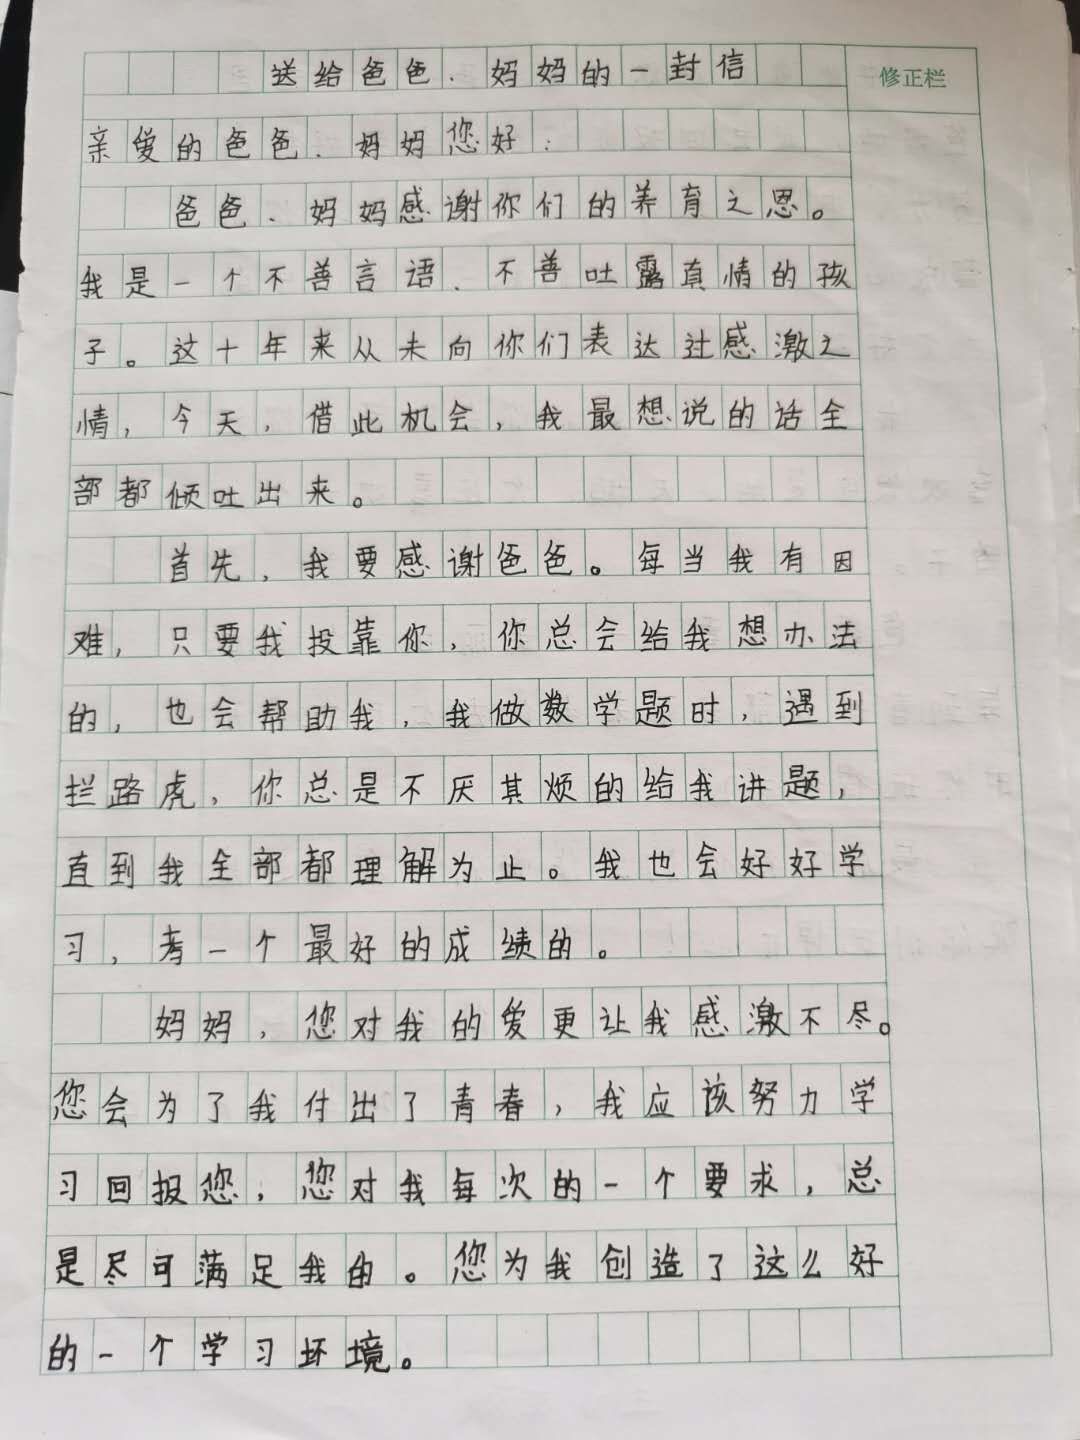 送给爸爸、妈妈的一封信
修正栏
亲爱的爸爸、妈妈您好：
爸爸、妈妈感谢你们的养育之恩。
我是一个不善言语、不善吐露真情的孩
子。这十年来从未向你们表达过感激之
情，今天，借此机会，我最想说的话全
部都倾吐出来。
首先，我要感谢爸爸。每当我有因
难，只要我投靠你，你总会给我想办法
的，也会帮助我，我做数学题时，遇到
拦路虎，你总是不厌其烦的给我讲题，
直到我全部都理解为止。我也会好好学
习，考一个最好的成绩的。
妈妈，您对我的爱更让我感激不尽。
您会为了我付出了青春，我应该努力学
习回报您，您对我每次的一个要求，总
是尽可满足我的。您为我创造了这么好
的一个学习坏境。